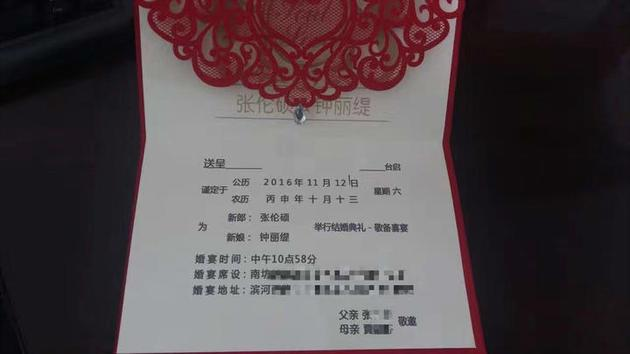 张伦硕 钟丽缇
送呈______ ____台启
公历 2016年11月12日
谨定于 星期六
农历 丙申年十月十三
新郎：张伦硕
为 举行结婚典礼-敬备喜宴
新娘：钟丽缇
婚宴时间：中午10点58分
婚宴席设：南坊
婚宴地址：滨河
父亲 张
敬邀
母亲 贾